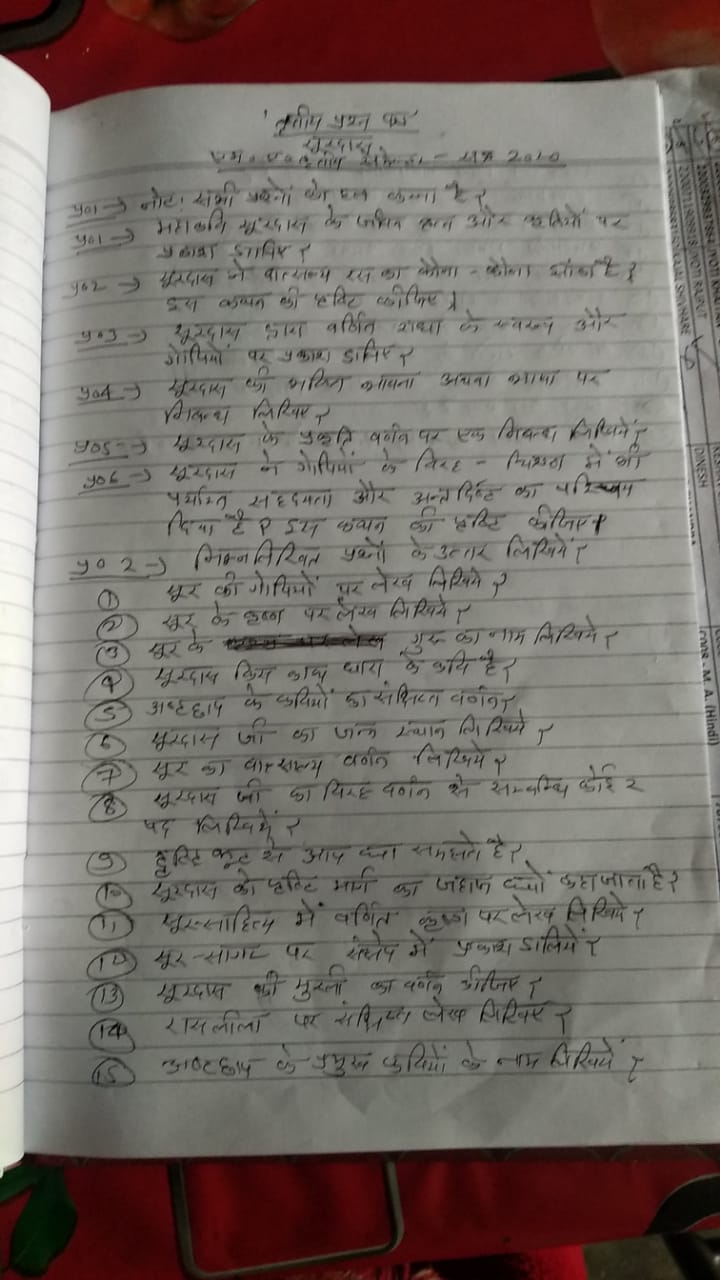 तृतीय प्रश्न पत्र
सूरदास
एम.ए. तृतीय सेमेस्टर - सत्र 2020
प्र01 → नोट: सभी प्रश्नों को हल करना है?
प्र01 → महाकवि सूरदास के जीवन और कृतियों पर
प्रकाश डालिए?
प्र02 → सूरदास ने वात्सल्य रस का कोना-कोना झांका है?
इस कथन की पुष्टि कीजिए।
प्र03 → सूरदास द्वारा वर्णित राधा के स्वरूप और
गोपियों पर प्रकाश डालिए?
प्र04 → सूरदास की भक्ति भावना अथवा भाषा पर
निबन्ध लिखिए?
प्र05 → सूरदास के प्रकृति वर्णन पर एक निबन्ध लिखिये?
प्र06 → सूरदास ने गोपियों के विरह - चित्रण में भी
पर्याप्त सहृदयता और अन्तर्दृष्टि का परिचय
दिया है? इस कथन की पुष्टि कीजिए।
प्र0 2 → निम्नलिखित प्रश्नों के उत्तर लिखिये?
① सूर की गोपियों पर लेख लिखिये?
② सूर के कृष्ण पर लेख लिखिये?
③ सूर के गुरू का नाम लिखिये?
④ सूरदास किस काव्य धारा के कवि है?
⑤ अष्टछाप के कवियों का संक्षिप्त वर्णन?
⑥ सूरदास जी का जन्म स्थान लिखिये?
⑦ सूर का वात्सल्य वर्णन लिखिये?
⑧ सूरदास जी का विरह वर्णन से सम्बन्धि कोई 2
पद लिखिये?
⑨ दृष्टि कूट से आप क्या समझते है?
⑩ सूरदास को पुष्टि मार्ग का जहाज क्यों कहा जाता है?
⑪ सूर-साहित्य में वर्णित कृष्ण पर लेख लिखिये?
⑫ सूर-सागर पर संक्षेप में प्रकाश डालिये?
⑬ सूरदास की मुरली का वर्णन कीजिए?
⑭ रासलीला पर संक्षिप्त लेख लिखिए?
⑮ अष्टछाप के प्रमुख कवियों के नाम लिखिये?
JYOTI RAJPUT
DINESH
M. A. (Hindi)